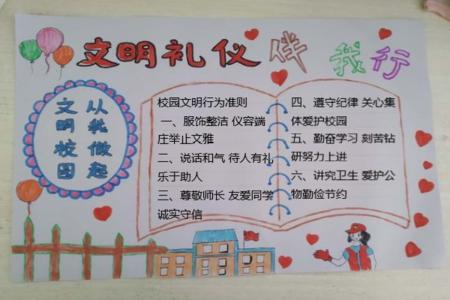 文明礼仪伴我行
文明校园
从我做起
校园文明行为准则
一、服饰整洁 仪容端
庄举止文雅
二、说话和气 待人有礼
乐于助人
三、尊敬师长 友爱同学
诚实守信
四、遵守纪律 关心集
体爱护校园
五、勤奋学习 刻苦钻
研努力上进
六、讲究卫生 爱护公
物勤俭节约